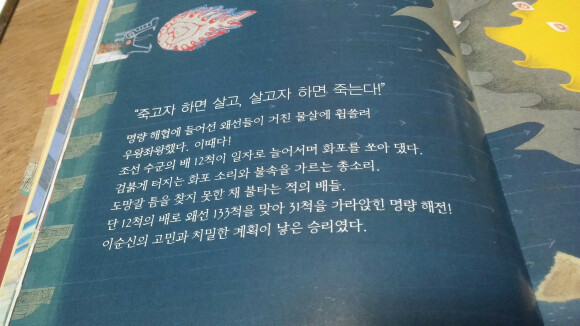 "죽고자 하면 살고, 살고자 하면 죽는다!"
명량 해협에 들어선 왜선들이 거친 물살에 휩쓸려
우왕좌왕했다. 이때다!
조선 수군의 배 12척이 일자로 늘어서며 화포를 쏘아 댔다.
검붉게 터지는 화포 소리와 불속을 가르는 총소리.
도망갈 틈을 찾지 못한 채 불타는 적의 배들.
단 12척의 배로 왜선 133척을 맞아 31척을 가라앉힌 명량 해전!
이순신의 고민과 치밀한 계획이 낳은 승리였다.